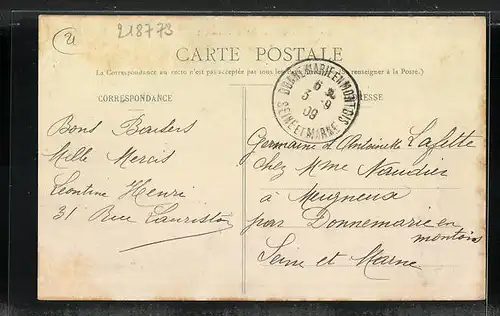 21
218773
CARTE POSTALE
(La Correspondance au recto n'est pas acceptée par tous les renseigner à la Poste.)
CORRESPONDANCE
ADRESSE
DONNEMARIE-EN-MONTOIS
6
5 - 9
09
SEINE ET MARNE
Bons Baisers
Mille Mercis
Léontine Henri
31 Rue Lauriston
Germaine et Antoinette Lafitte
chez Mme Naudin
à Meigneux
par Donnemarie en
montois
Seine et Marne